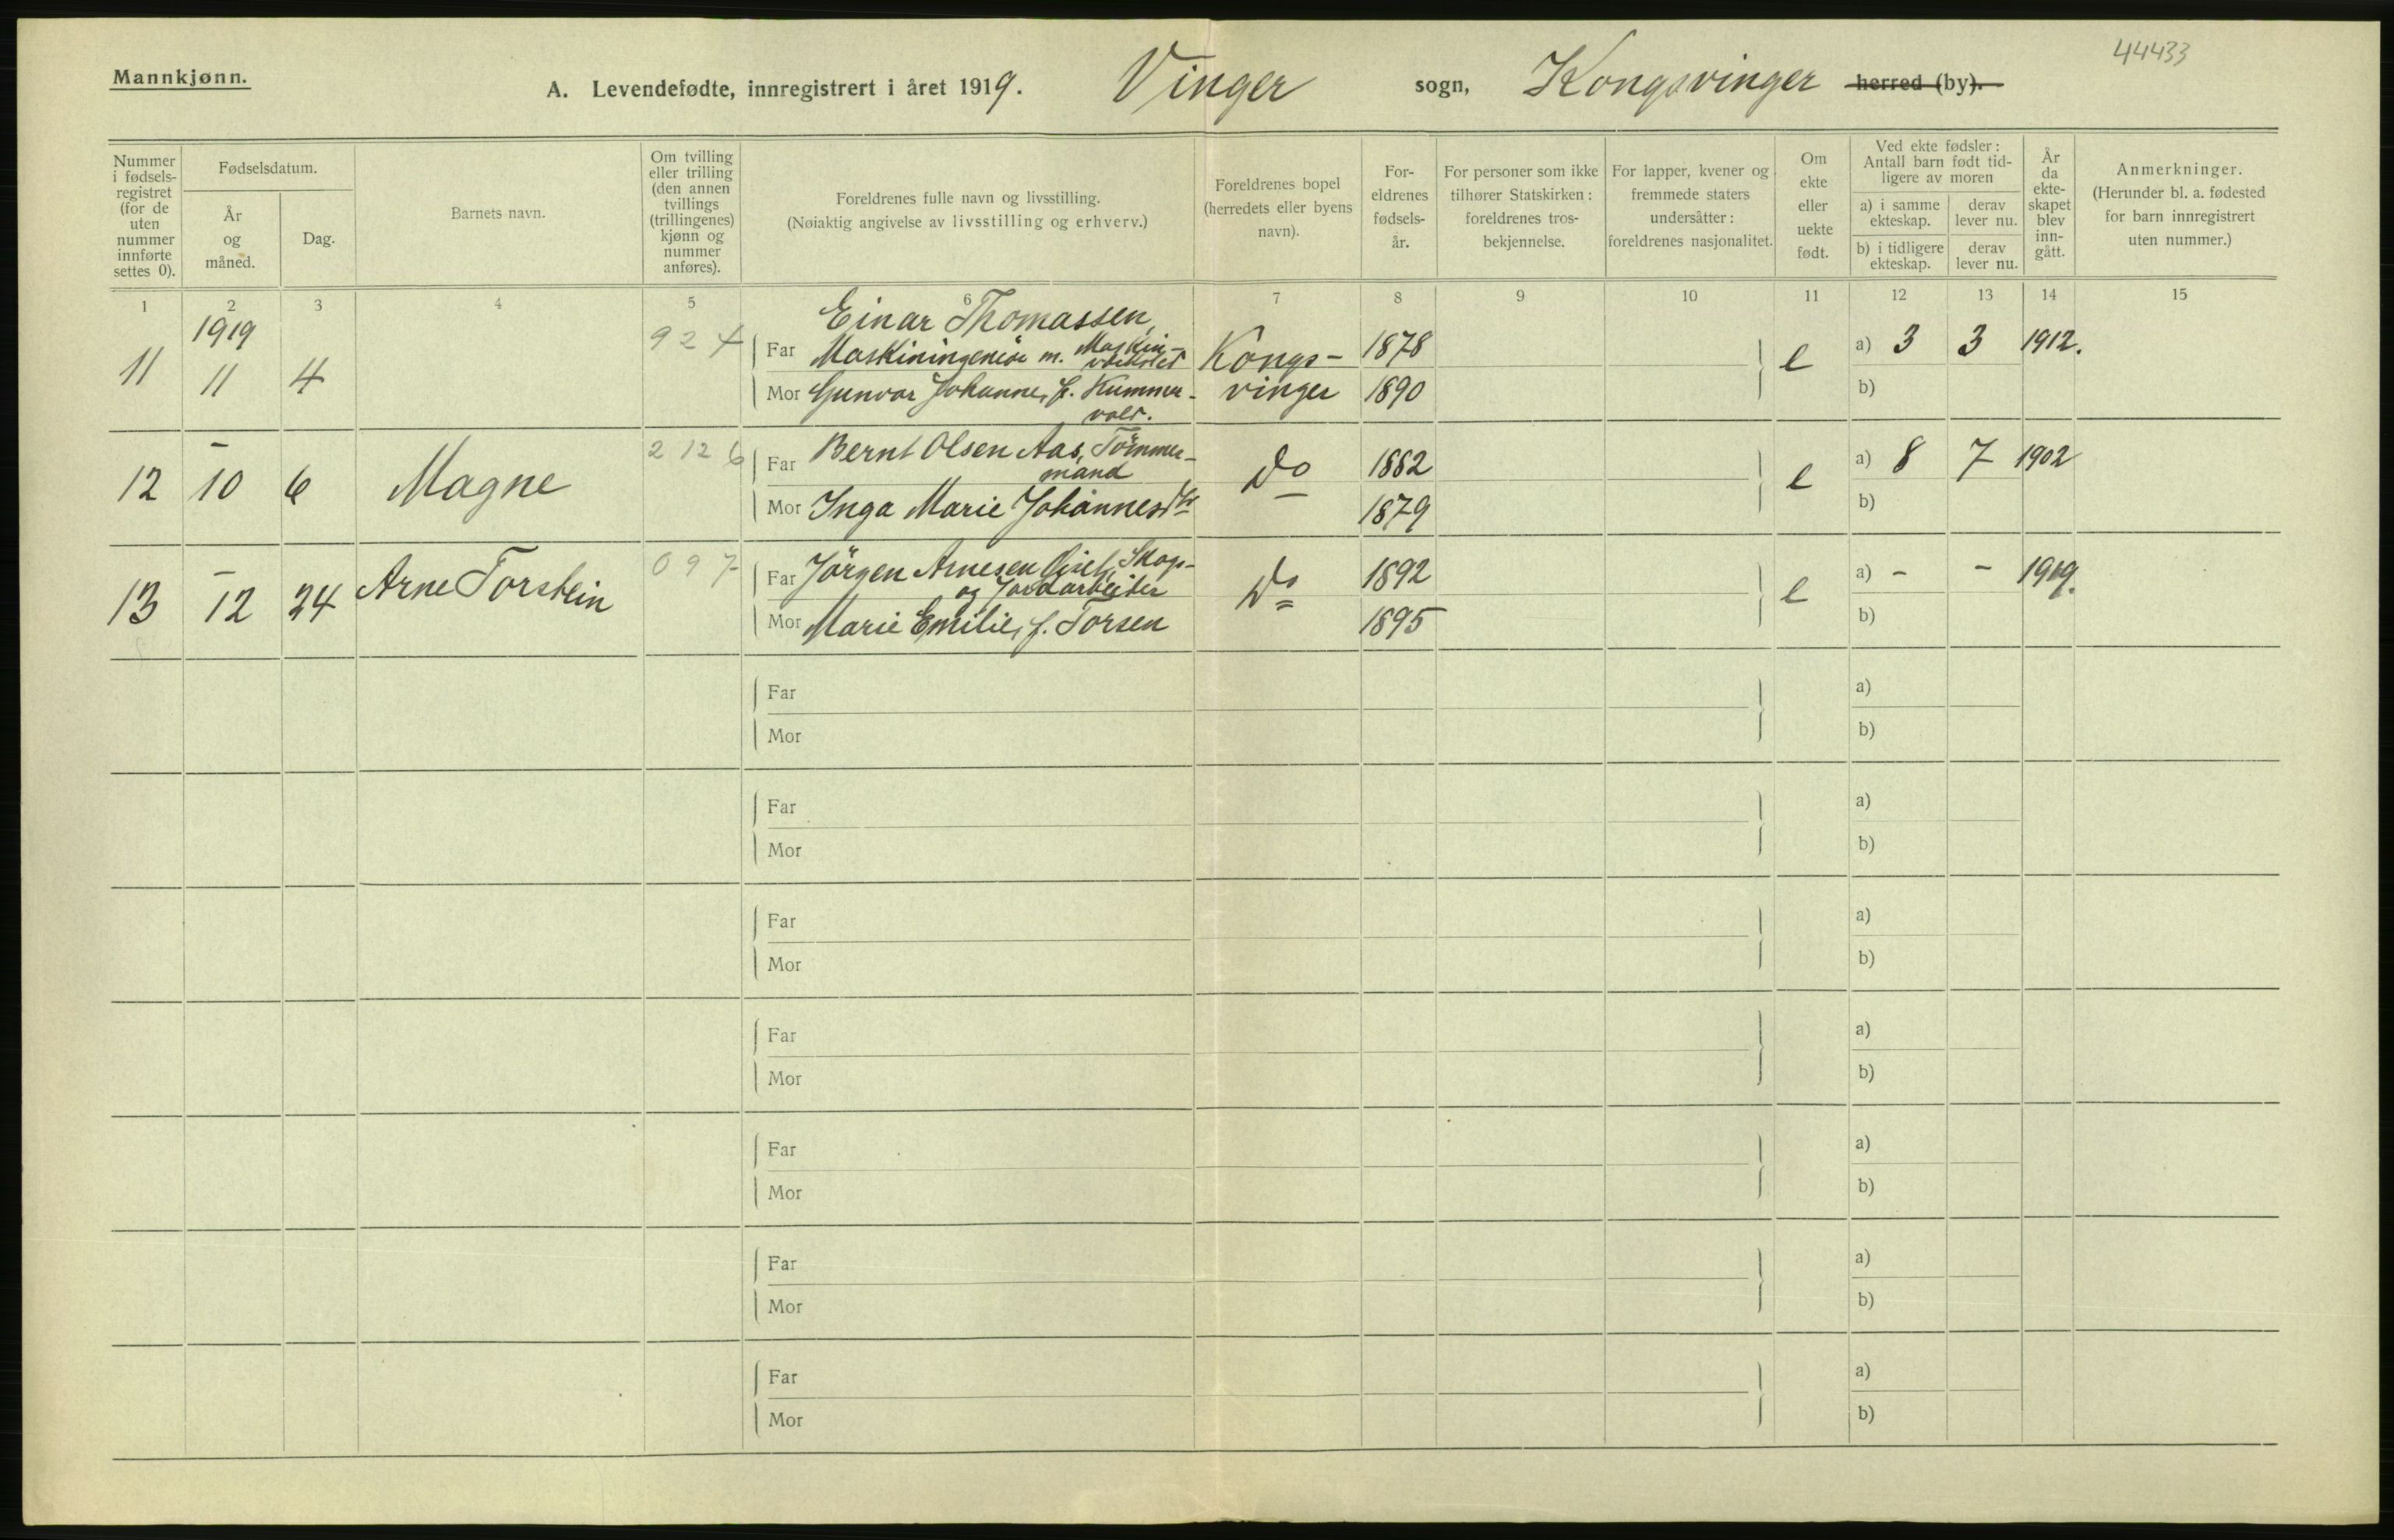 44433
Mannkjønn.
A. Levendefødte, innregistrert i året 1919. Vinger sogn, Kongsvinger herred (by).
Nummer i fødsels-registret (for de uten nummer innførte settes 0).
Fødselsdatum.
År og måned.
Dag.
Barnets navn.
Om tvilling eller trilling (den annen tvillings (trillingenes) kjønn og nummer anføres).
Foreldrenes fulle navn og livsstilling.
(Nøiaktig angivelse av livsstilling og erhverv.)
Foreldrenes bopel (herredets eller byens navn).
For-eldrenes fødsels-år.
For personer som ikke tilhører Statskirken: foreldrenes tros-bekjennelse.
For lapper, kvener og fremmede staters undersåtter: foreldrenes nasjonalitet.
Om ekte eller uekte født.
Ved ekte fødsler: Antall barn født tid-ligere av moren
a) i samme ekteskap.
derav lever nu.
b) i tidligere ekteskap.
derav lever nu.
År da ekte-skapet blev inn-gått.
Anmerkninger.
(Herunder bl. a. fødested for barn innregistrert uten nummer.)
1 2 3 4 5 6 7 8 9 10 11 12 13 14 15
1919
Einar Thomassen,
11 11 4 924 Far Maskiningeniør m. Maskin-
Kongs- 1878 e a) 3 3 1912.
Mor Gunvor Johanne, f. Kummer-
vold.
vinger 1890 b)
12 – 10 6 Magne 2 12 6 Far Bernt Olsen Aas, Tömmer-
mand
Do 1882 e a) 8 7 1902
Mor Inga Marie Johannesdtr 1879 b)
13 – 12 24 Arne Torstein 097 Far Jörgen Arnesen Skogs-
og Jordarbeider
Do 1892 e a) - - 1919.
Mor Marie Emilie, f. Torsen 1895 b)
Far a)
Mor b)
Far a)
Mor b)
Far a)
Mor b)
Far a)
Mor b)
Far a)
Mor b)
Far a)
Mor b)
Far a)
Mor b)